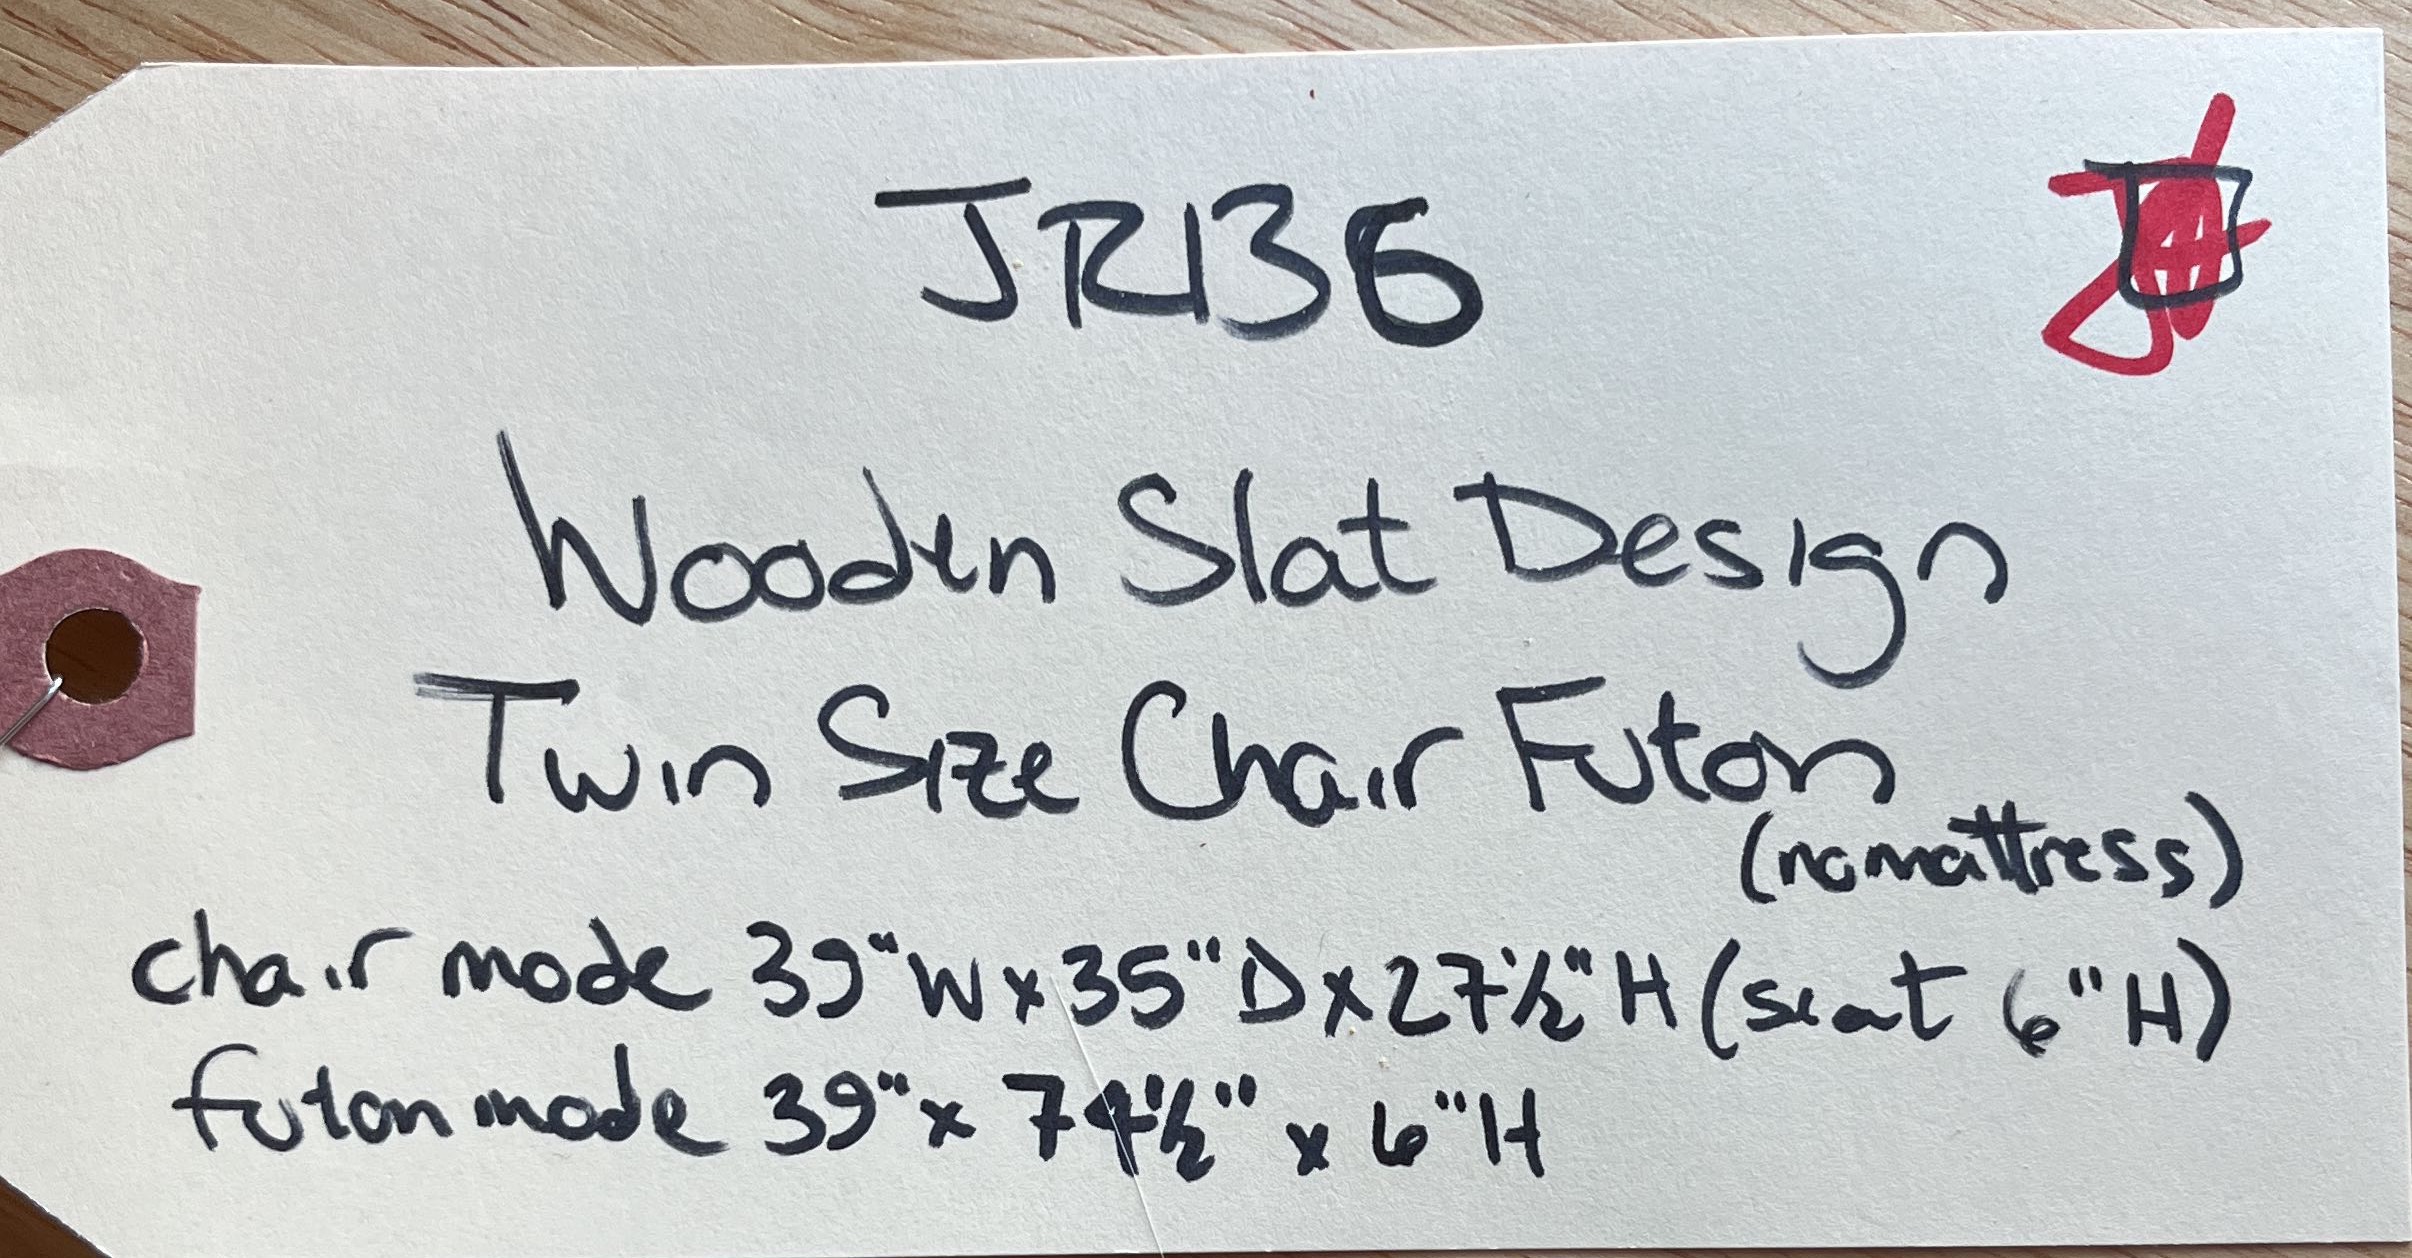 JR136
Wooden Slat Design
Twin Size Chair Futon
(no mattress)
chair mode 39"W x 35"D x 27 1/2"H (seat 6"H)
futon mode 39" x 74 1/2" x 6"H